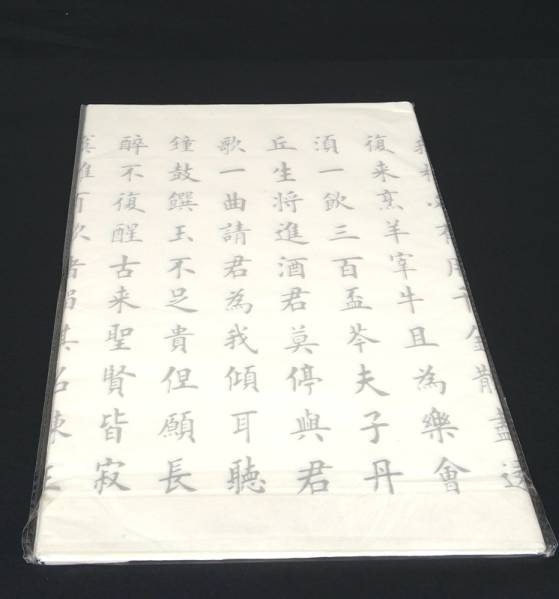 有用千金散盡還
復来烹羊宰牛且為樂會
湏一飲三百盃岑夫子丹
丘生将進酒君莫停與君
歌一曲請君為我傾耳聽
鐘鼓饌玉不足貴但願長
醉不復醒古来聖賢皆寂
者留其名陳